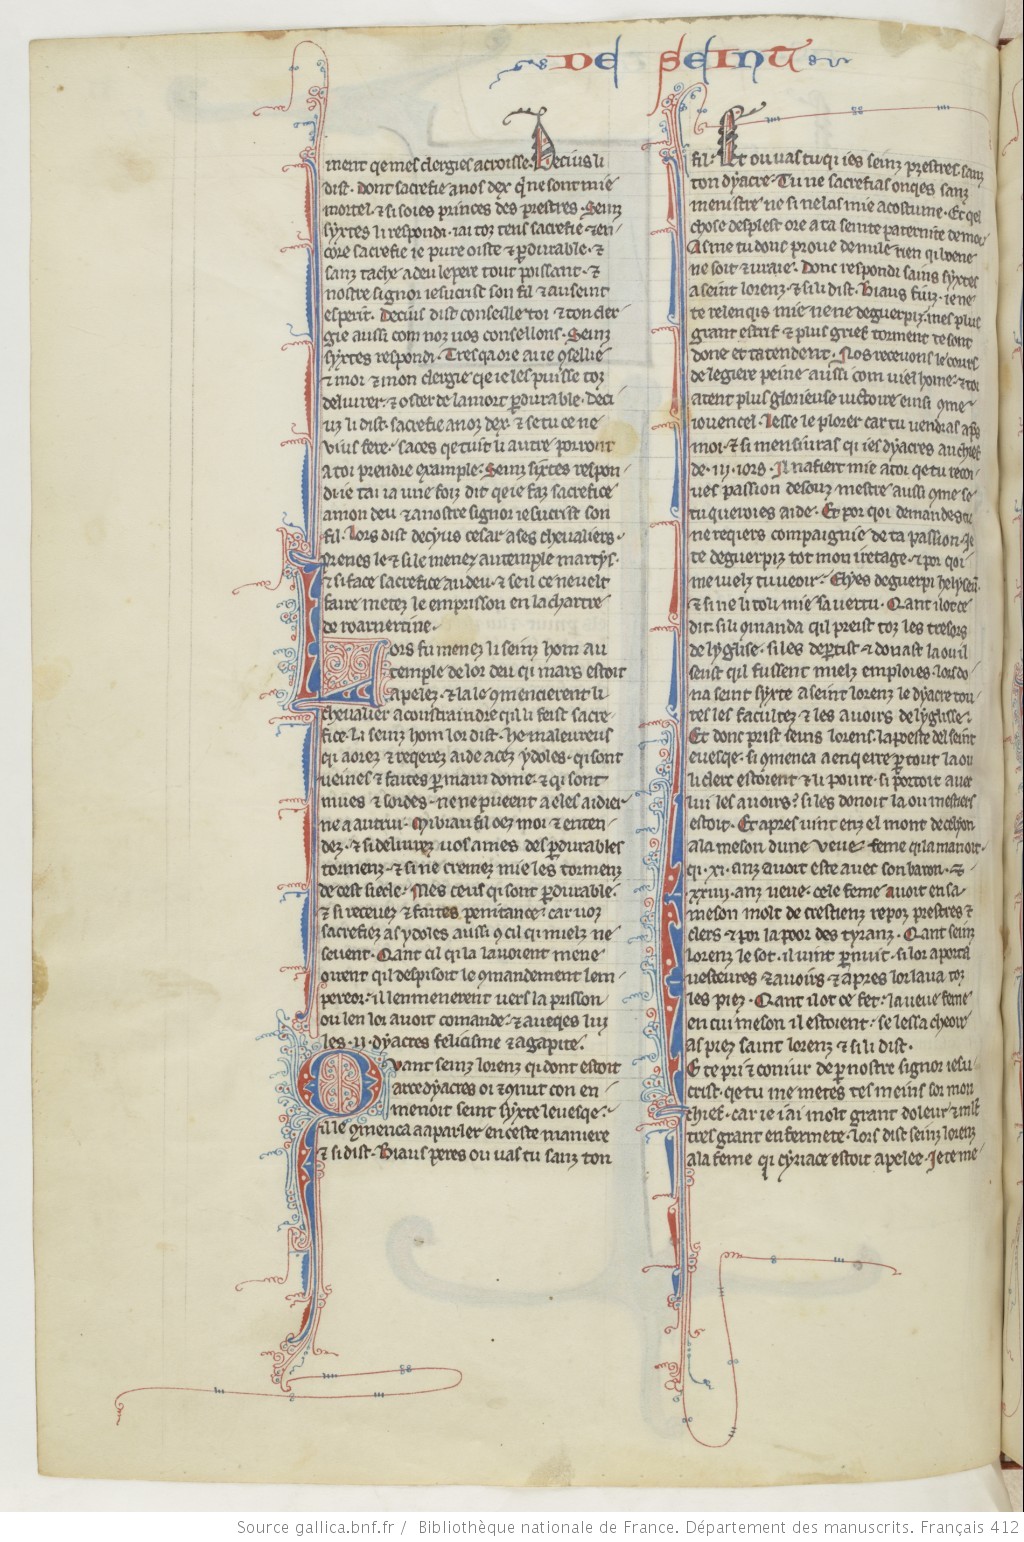 DE SEINT
ment qe mes clergies acroisse. Decius li
dist. dont sacrefie a nos dex q̄ ne sont mie
mortel. ⁊ si soies princes des prestres. Seinz
syxtes li respondi. iai toz tens sacrefie ⁊ en-
core sacrefie ie pure oiste ⁊ ꝑdurable. ⁊
sanz tache a deu le pere tout poissant. ⁊
nostre signor iesucrist son fil ⁊ au seint
esperit. Decius dist conseille toi ⁊ ton cler-
gie aussi com noz uos consellons. Seinz
syxtes respondi. Tres qa ore aı ie ꝯsellie
⁊ moi ⁊ mon clergie qe ie les puisse toz
delivrer ⁊ oster de la mort ꝑdurable. Deci-
uz li dist. sacrefie a noz dex. ⁊ se tu ce ne
vius fere. saces qe tuit li autre porront
a toi prendre example. Seinz sixtes respon-
di ie tai ia une foiz dit qe ie faz sacrefice
a mon deu ⁊ a nostre signor iesucrist son
fil. Lors dist decyus cesar a ses chevaliers.
prenes le ⁊ si le menez au temple martys.
⁊ si face sacrefice au deu. ⁊ se il ce ne velt
faire metez le emprisson en la chartre
de mamertine.
Lors fu menez li seinz hom au
temple de lor deu qi mars estoit
apelez. ⁊ la le ꝯmencierent li
chevalier a constraindre qil li feist sacre-
fice. Li seinz hom lor dist. he maleureus
qi aorez ⁊ reqerez aide a cez ydoles. qi sont
veines ⁊ faites ꝑ main dome. ⁊ qi sont
mues ⁊ sordes. ne ne pueent a eles aidier
ne a autrui. Mi biau fil oez moi ⁊ enten-
dez. ⁊ si delivrez vos ames des ꝑdurables
tormenz. ⁊ si ne cremez mie les tormenz
de cest siecle. Mes ceus qi sont ꝑdurable.
⁊ si recevez ⁊ faites penitance. car voz
sacrefiez as ydoles aussi ꝯ cil qi mielz ne
sevent. Qant cil qi la lavoient mene
oirent qil despisoit le ꝯmandement lem-
pereor. il lenmenerent vers la prisson
ou len lor avoit comande. ⁊ aveqes lui
les .ii. dyacres felicisme ⁊ agapite.
Qvant seinz lorenz qi dont estoit
arcedyacres oi ⁊ ꝯnut con en
menoit seint syxte levesqe.
il le ꝯmenca a aparler en ceste maniere
⁊ si dist. Biaus peres ou vas tu sanz ton
fil. Et ou vas tu qi ies seinz prestres sanz
ton dyacre. Tu ne sacrefias onqes sanz
menistre ne si ne las mie acostume. Et qel
chose desplest ore a ta seinte paternite de moi.
As me tu donc prove de nule rien qi bone
ne soit ⁊ uraie. Donc respondi sains syxtes
a seint lorenz. ⁊ si li dist. Biaus fuiz. ie ne
te relenqis mie ne ne deguerpiz. mes plus
grant estrif ⁊ plus grief torment te sont
done et tatendent. Nos recevons le cours
de legiere peine aussi com viel home. ⁊ toi
atent plus glorieuse victoire einsi ꝯme
iovencel. Lesse le plorer car tu vendras aps̄
moi. ⁊ si mensiuras qi ies dyacres au chief
de .iii. iors. Il nafiert mie a toi qe tu recoi-
ves passion desouz mestre aussi ꝯme se
tu queroies aide. Et por qoi demandes tu
ne reqiers compaignie de ta passion. Je
te deguerpiz tot mon iretage. ⁊ por qoi
me vuelz tu veoir. Elyes deguerpi helyseu.
⁊ si ne li toli mie sa vertu. Qant il ot ce
dit. si li ꝯmanda qil preist toz les tresors
de lyglise. si les deꝑtist ⁊ donast la ou il
seust qil fussent mielz emploies. lors do-
na seint syxte a seint lorenz le dyacre tou-
tes les facultez ⁊ les avoirs de lyglisse.
Et donc prist seins lorens. la poeste del seint
evesqe. si ꝯmenca a enqerre ꝑ tout la ou
li clerc estoient ⁊ li povre. si portoit avec
lui les avoirs. si les donoit la ou mestiers
estoit. Et apres vint enz el mont de celyon
a la meson dune veve feme qi la manoit.
qi .xi. anz avoit este avec son baron. ⁊
.xxiiij. anz veve. cele feme avoit en sa
meson molt de crestienz repoz prestres ⁊
clers ⁊ por la poor des tyranz. Qant seinz
lorenz le sot. il vint ꝑ nuit. si lor aporta
vesteures ⁊ avoirs. ⁊ apres lor lava toz
les piez. Qant il ot ce fet. la veve feme
en cui meson il estoient. se lessa cheoir
as piez saint lorenz ⁊ si li dist.
Ge te pri ⁊ coniur de ꝑ nostre signor iesu-
crist. qe tu me metes tes meins sor mon
chief. car ie i ai molt grant doleur ⁊ mlt
tres grant enfermete. Lors dist seinz lorenz
a la feme qi cyriace estoit apelee. Je te me-
Source gallica.bnf.fr / Bibliothèque nationale de France. Département des manuscrits. Français 412